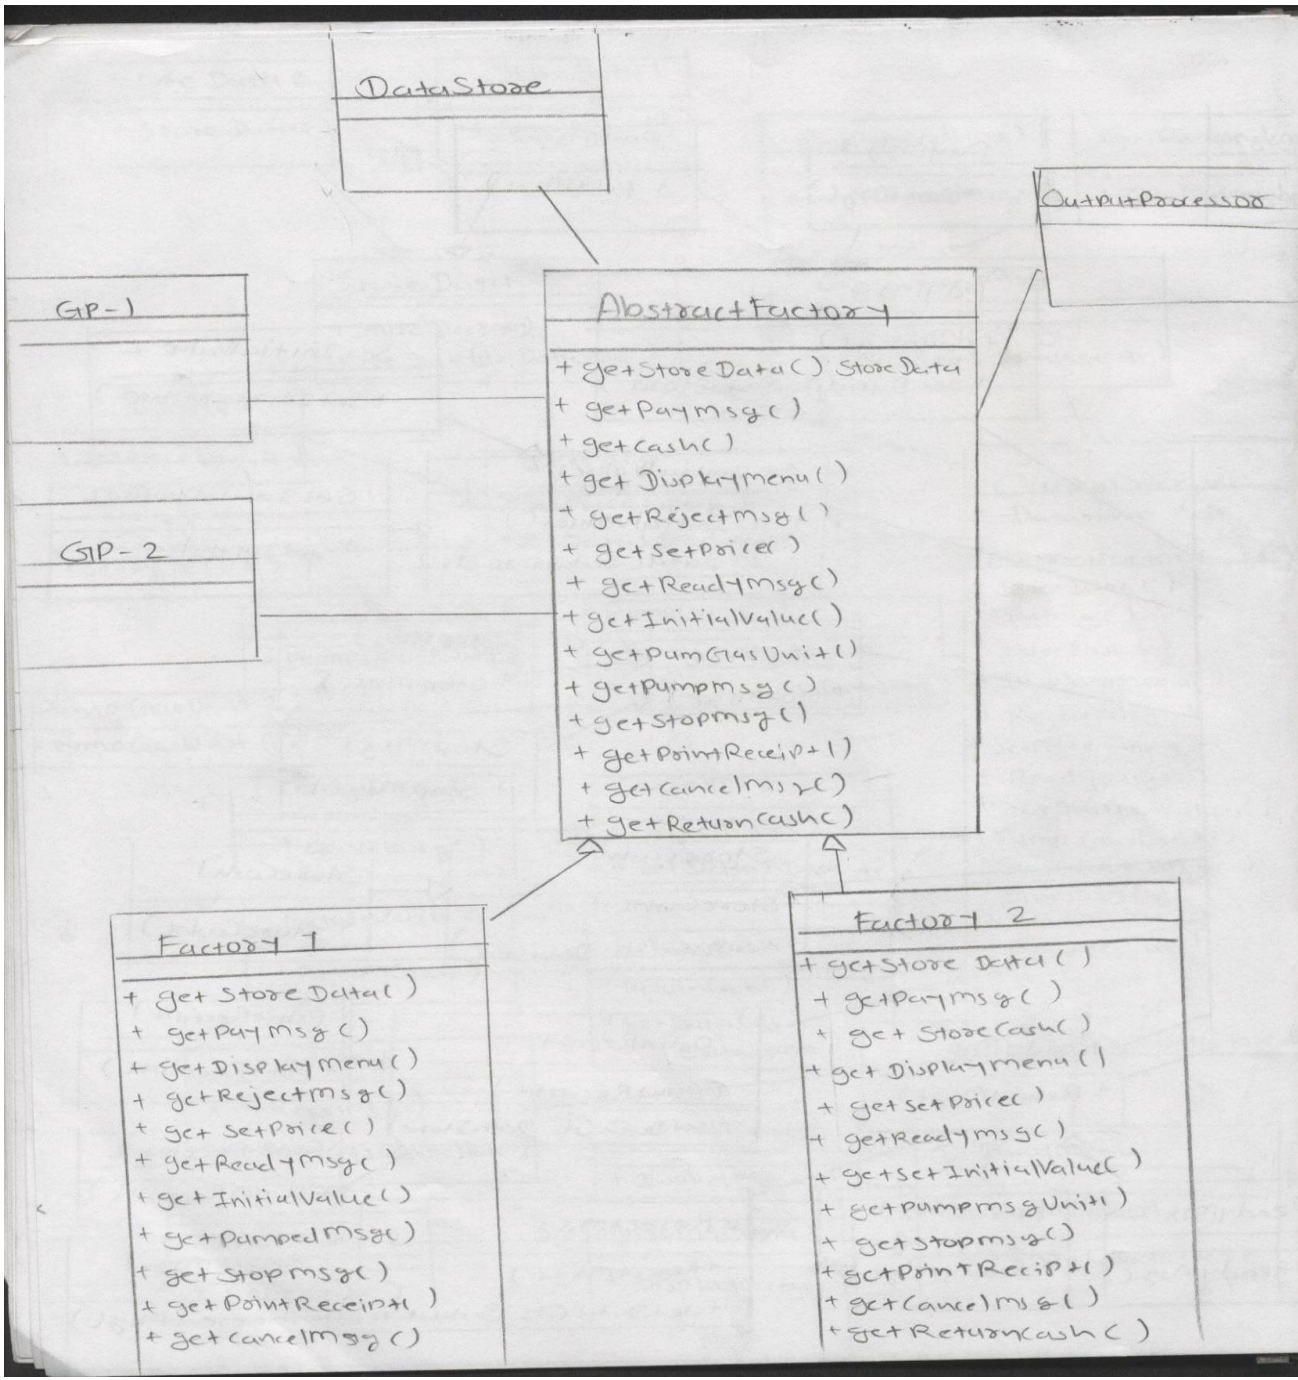 DataStore
OutputProcessor
GP-1
AbstractFactory
+ getStoreData() StoreData
+ getPaymsg()
+ getCash()
+ getDisplaymenu()
+ getRejectmsg()
+ getSetPrice()
+ getReadymsg()
+ getInitialValue()
+ getPumGasUnit()
+ getPumpmsg()
+ getStopmsg()
+ getPrintReceipt()
+ getCancelmsg()
+ getReturnCash()
GP-2
Factory 1
+ getStoreData()
+ getPaymsg()
+ getDisplaymenu()
+ getRejectmsg()
+ getSetPrice()
+ getReadymsg()
+ getInitialValue()
+ getPumpedmsg()
+ getStopmsg()
+ getPrintReceipt()
+ getCancelmsg()
Factory 2
+ getStore Data()
+ getPaymsg()
+ getStoreCash()
+ getDisplaymenu()
+ getSetPrice()
+ getReadymsg()
+ getSetInitialValue()
+ getPumpmsgUnit()
+ getStopmsg()
+ getPrintRecipt()
+ getCancelmsg()
+ getReturnCash()